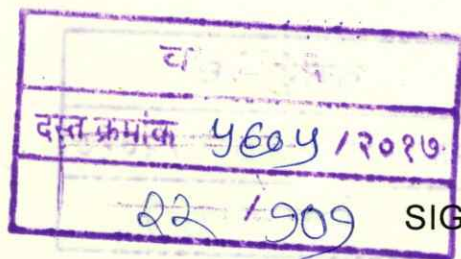 च
दस्त क्रमांक ५७०५ / २०१७
२२ / १०१ SIG